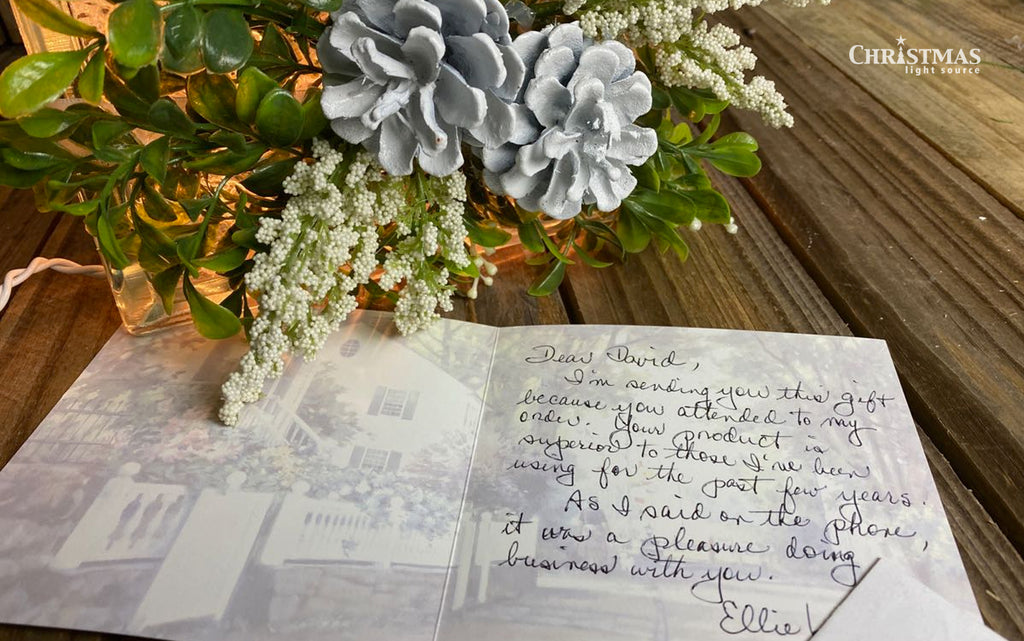 CHRISTMAS
light source
Dear David,
I'm sending you this gift
because you attended to my
order. Your product is
superior to those I've been
using for the past few years.
As I said on the phone,
it was a pleasure doing
business with you.
Ellie!